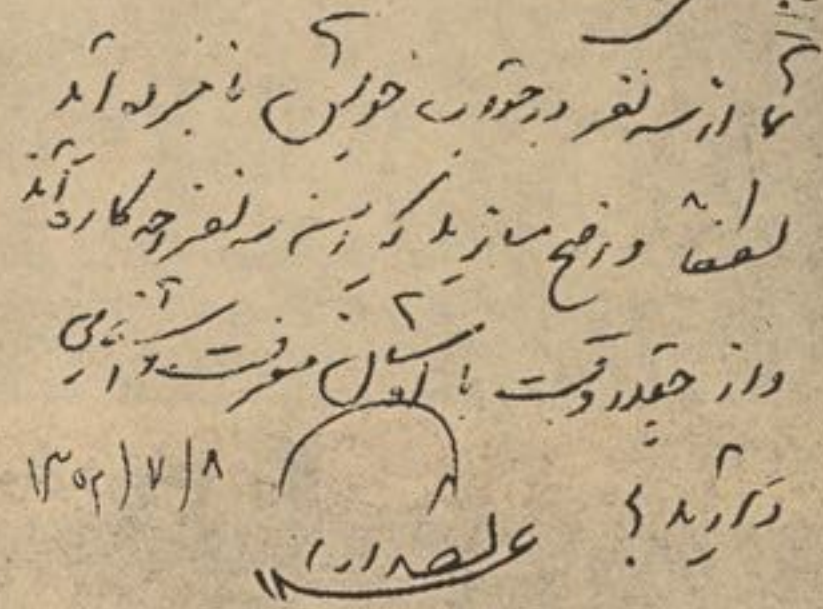 شما از سه نفر در جواب خویش نامبرده اند
لطفاً واضح سازید که این سه نفر چه کاره اند
و از چقدر وقت با ایشان معرفت و آشنایی
دارید؟
۱۳۵۲/۷/۸